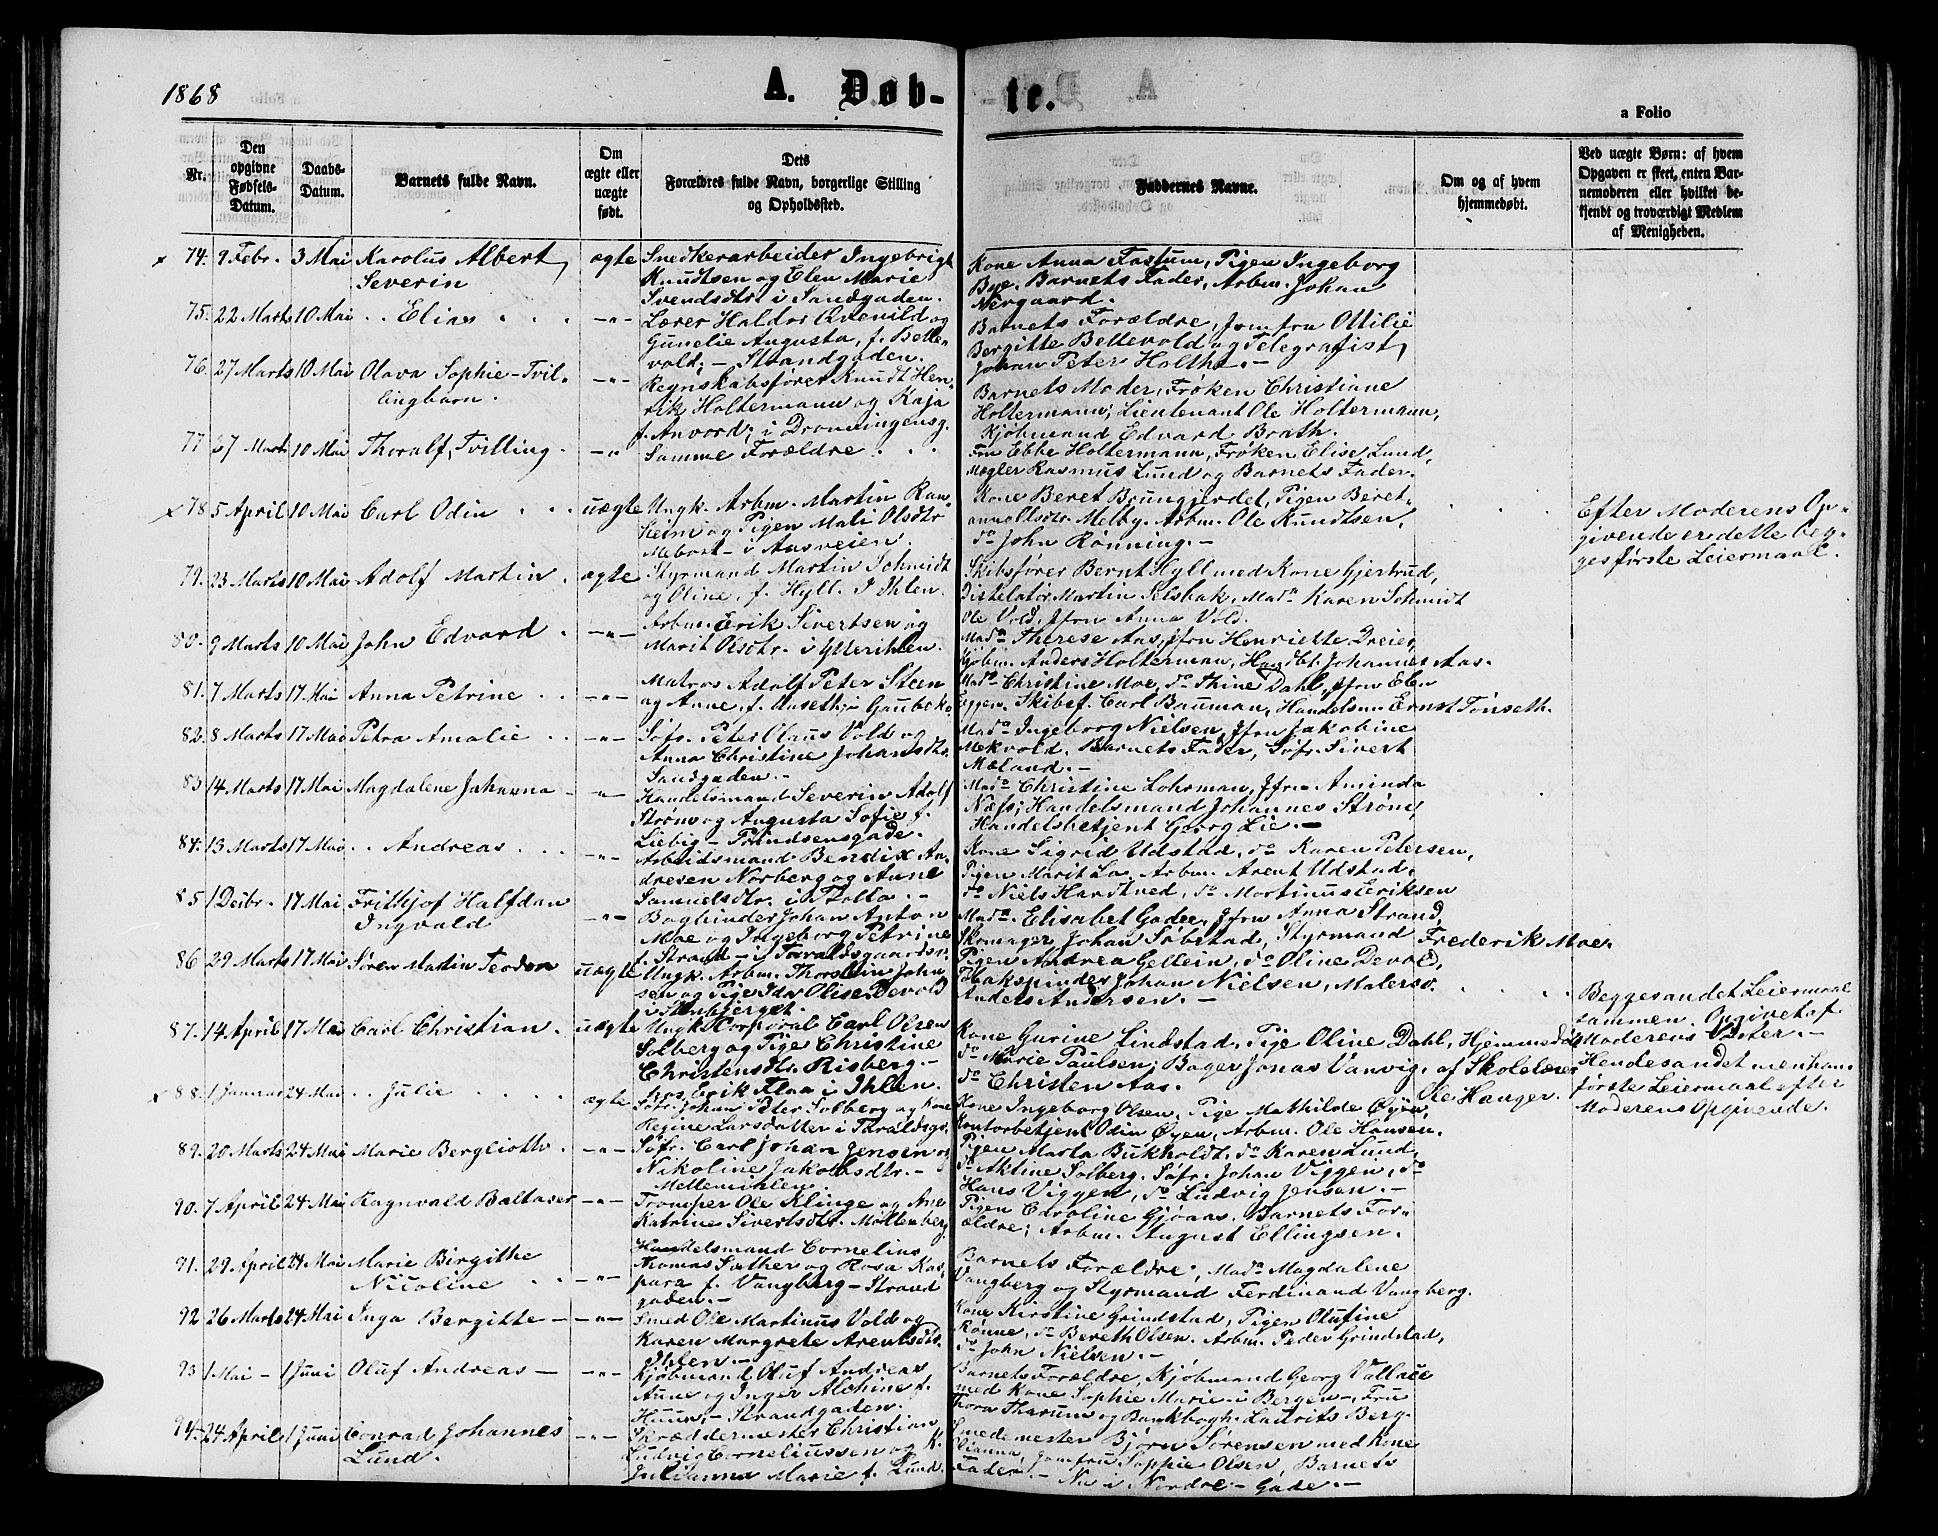 1868
A. Døb-
te.
a Folio
Nr.
Den
opgivne
Fødsels-
Datum.
Daabs-
Datum.
Barnets fulde Navn.
Om
ægte eller
uægte
født.
Dets
Forældres fulde Navn, borgerlige Stilling
og Opholdssted.
Faddernes Navne.
Om og af hvem
hjemmedøbt.
Ved uægte Børn: af hvem
Opgaven er skeet, enten Bar-
nemoderen eller hvilket be-
kjendt og troværdigt Medlem
af Menigheden.
74. 9 Febr. 3 Mai Karolus Albert
Severin
ægte
Snedkerarbeider Ingebrigt
Knudtsen og Elen Marie
Svendsdtr. i Sandgaden.
Kone Anna Fossum, Pigen Ingeborg
Bye. Barnets Fader, Arbm. Johan
Nergaard.
75. 22 Marts 10 Mai Elias
Lærer Haldor Ødevild og
Gunelie Augusta, f. Belle-
vold. - Strandgaden.
Barnets Forældre, Jomfru Ottilie
Bergitte Bellevold og Telegrafist
Johan Peter Holthe. -
76. 27 Marts 10 Mai Olava Sophie - Tvil-
lingbarn.
Regnskabsfører Knudt Hen-
rik Holtermann og Kaja
f. Anvord; i Dronningensg.
Barnets Moder, Frøken Christiane
Holtermann; Lieutenant Ole Holtermann,
Kjøbmand Edvard Brath.
77 27 Marts 10 Mai Thoralf, Tvilling.
Samme Forældre
Fru Ebbe Holtermann, Frøken Elise Lund,
Mægler Rasmus Lund og Barnets Fader.
78 5 April 10 Mai Carl Odin
uægte
Ungk. Arbm. Martin Ram-
heim og Pigen Mali Olsdtr
i Aasveien.
Kone Beret Brungjerdet, Pigen Beret-
anna Olsdtr. Melby. Arbm. Ole Knudtsen,
do John Rønning. -
Efter Moderens Op-
givende er dette beg-
ges første Leiermaal.
79. 23 Marts 10 Mai Adolf Martin
ægte
Styrmand Martin Schmidt
og Oline, f. Hyll. I Ihlen.
Skibsfører Bernt Hyll med Kone Gjertrud,
Distelatør Martin Selsbak, Mada Karen Schmidt
Ole Vold, Jfru Anna Vold.
80. 9 Marts 10 Mai John Edvard
Arbm. Erik Sivertsen og
Marit Olsdtr. i Ytterihlen.
Mada Therese Aas, Jfru Henriette Dreier,
Kjøbm. Anders Holterman, Handbt. Johannes Aas.
81. 7 Marts 17 Mai Anna Petrine
Matros Adolf Peter Steen
og Anne, f. Auseth; i Gaubekv.
Mada Christine Moe, do Thine Dahl, Jfru Elen
Eggen. Skibsf. Carl Bauman, Handelsm. Ernst Tønseth.
82. 8 Marts 17 Mai Petra Amalie
Søfr. Peter Olaus Vold og
Anna Christine Johansdtr.
Sandgaden. -
Mada Ingeborg Nielsen, Jfru Jakobine
Mekvold. Barnets Fader, Søfr. Sivert
Mæland. -
83 14 Marts 17 Mai Magdalene Johanna
Handelsmand Severin Adolf
Strøm og Augusta Sofie f.
Liebig - Prindsensgade.
Mada Christine Lohrman, Jfru Aminda
Næss; Handelsmand Johannes Strøm,
Handelsbetjent Georg Lie. -
84. 13 Marts 17 Mai Andreas
Arbeidsmand Bendix An-
dresen Norberg og Anne
Samuelsdtr. i Bolla. -
Kone Sigrid Udstad, do Karen Petersen,
Pigen Marit Lo. Arbm. Arent Udstad,
do Niels Hardtved, do Mortinus Eriksen
85 1 Decbr. 17 Mai Frithjof Halfdan
Ingvald
Bogbinder Johan Anton
Moe og Ingeborg Petrine
f. Strand - i Taraldsgaardsv.
Mada Elisabet Gader, Jfru Anna Strand,
Skomager Johan Søbstad, Styrmand
Frederik Moe.
86 29 Marts 17 Mai Søren Martin Teodor
uægte
Ungk. Arbm. Thorstein John-
sen og Pige Ida Olise Devold
i Stenbjerget.
Pigen Andrea Gellein, do Oline Devol,
Tobakspinder Johan Nielsen, Malersv.
Anders Andersen. -
Begges andet Leiermaal
sammen. Opgivet af
Moderens Søster. -
87. 14 April 17 Mai Carl Christian
uægte
Ungk. Korporal Carl Olsen
Solberg og Pige Christine
Christensdtr. Risberg -
hos Erik Flaa i Ihlen.
Kone Gurine Lindstad, Pige Oline Dahl,
do Marie Paulsen; Bager Jonas Vanvig,
do Christen Aas.
Hjemmedøbt
af Skolelærer
Ole Hauger.
Hendes andet men hans
første Leiermaal efter
Moderens Opgivende.
88. 1 Januar 24 Mai Julie
ægte
Søfr. Johan Peter Solberg og Kone
Regine Larsdatter i Taraldsgv.
Kone Ingeborg Olsen, Pige Mathilde Øyen,
Kontorbetjent Odin Øyen, Arbm. Ole Hansen.
89. 20 Marts 24 Mai Marie Bergliothe
Søfr. Carl Johan Jensen og
Nikoline Jakobsdtr. -
Mellemihlen.
Pigen Marta Bukholdt, do Karen Lund,
do Aktine Solberg. Søfr. Johan Viggen, do
Hans Viggen, do Ludvig Jensen. -
90. 7 April 24 Mai Ragnvald Baltaser
Tromper Ole Klinge og Ane
Katrine Sivertsdtr. Møllenberg.
Pigen Caroline Gjøaas. Barnets For-
ældre; Arbm. August Ellingsen.
91. 29 April 24 Mai Marie Birgithe
Nicoline
Handelsmand Cornelius
Thomas Sæther og Rosa Kas-
para f. Vangberg - Strand
gaden. -
Barnets Forældre, Mada Magdalene
Vangberg og Styrmand Ferdinand Vangberg.
92 26 Marts 24 Mai Inga Bergitte
Smed Ole Martinus Vold og
Karen Margrete Arentsdtr.
Ihlen. -
Kone Kirstine Grindstad, Pigen Olufine
Rønne, do Bereth Olsen. Arbm. Peder Grindstad,
do John Nielsen. -
93 1 Mai - 1 Juni Oluf Andreas
Kjøbmand Oluf Andreas
Aune og Inger Alchine f.
Huun, - Strandgaden.
Barnets Forældre, Kjøbmand Georg Vallace
med Kone Sophie Marie i Bergen -, Fru
Thora Tharum og Bankbogh. Laurits Berg.
94. 24 April 1 Juni Conrad Johannes
Lund.
Skræddermester Christian
Ludvig Corneliussen og K.
Julianna Marie f. Lund.
Smedemester Bjørn Sørensen med Kone
Olianna, Jomfru Sophie Olsen, Barnets
Fader. - Nu i Nordre - Gade. -